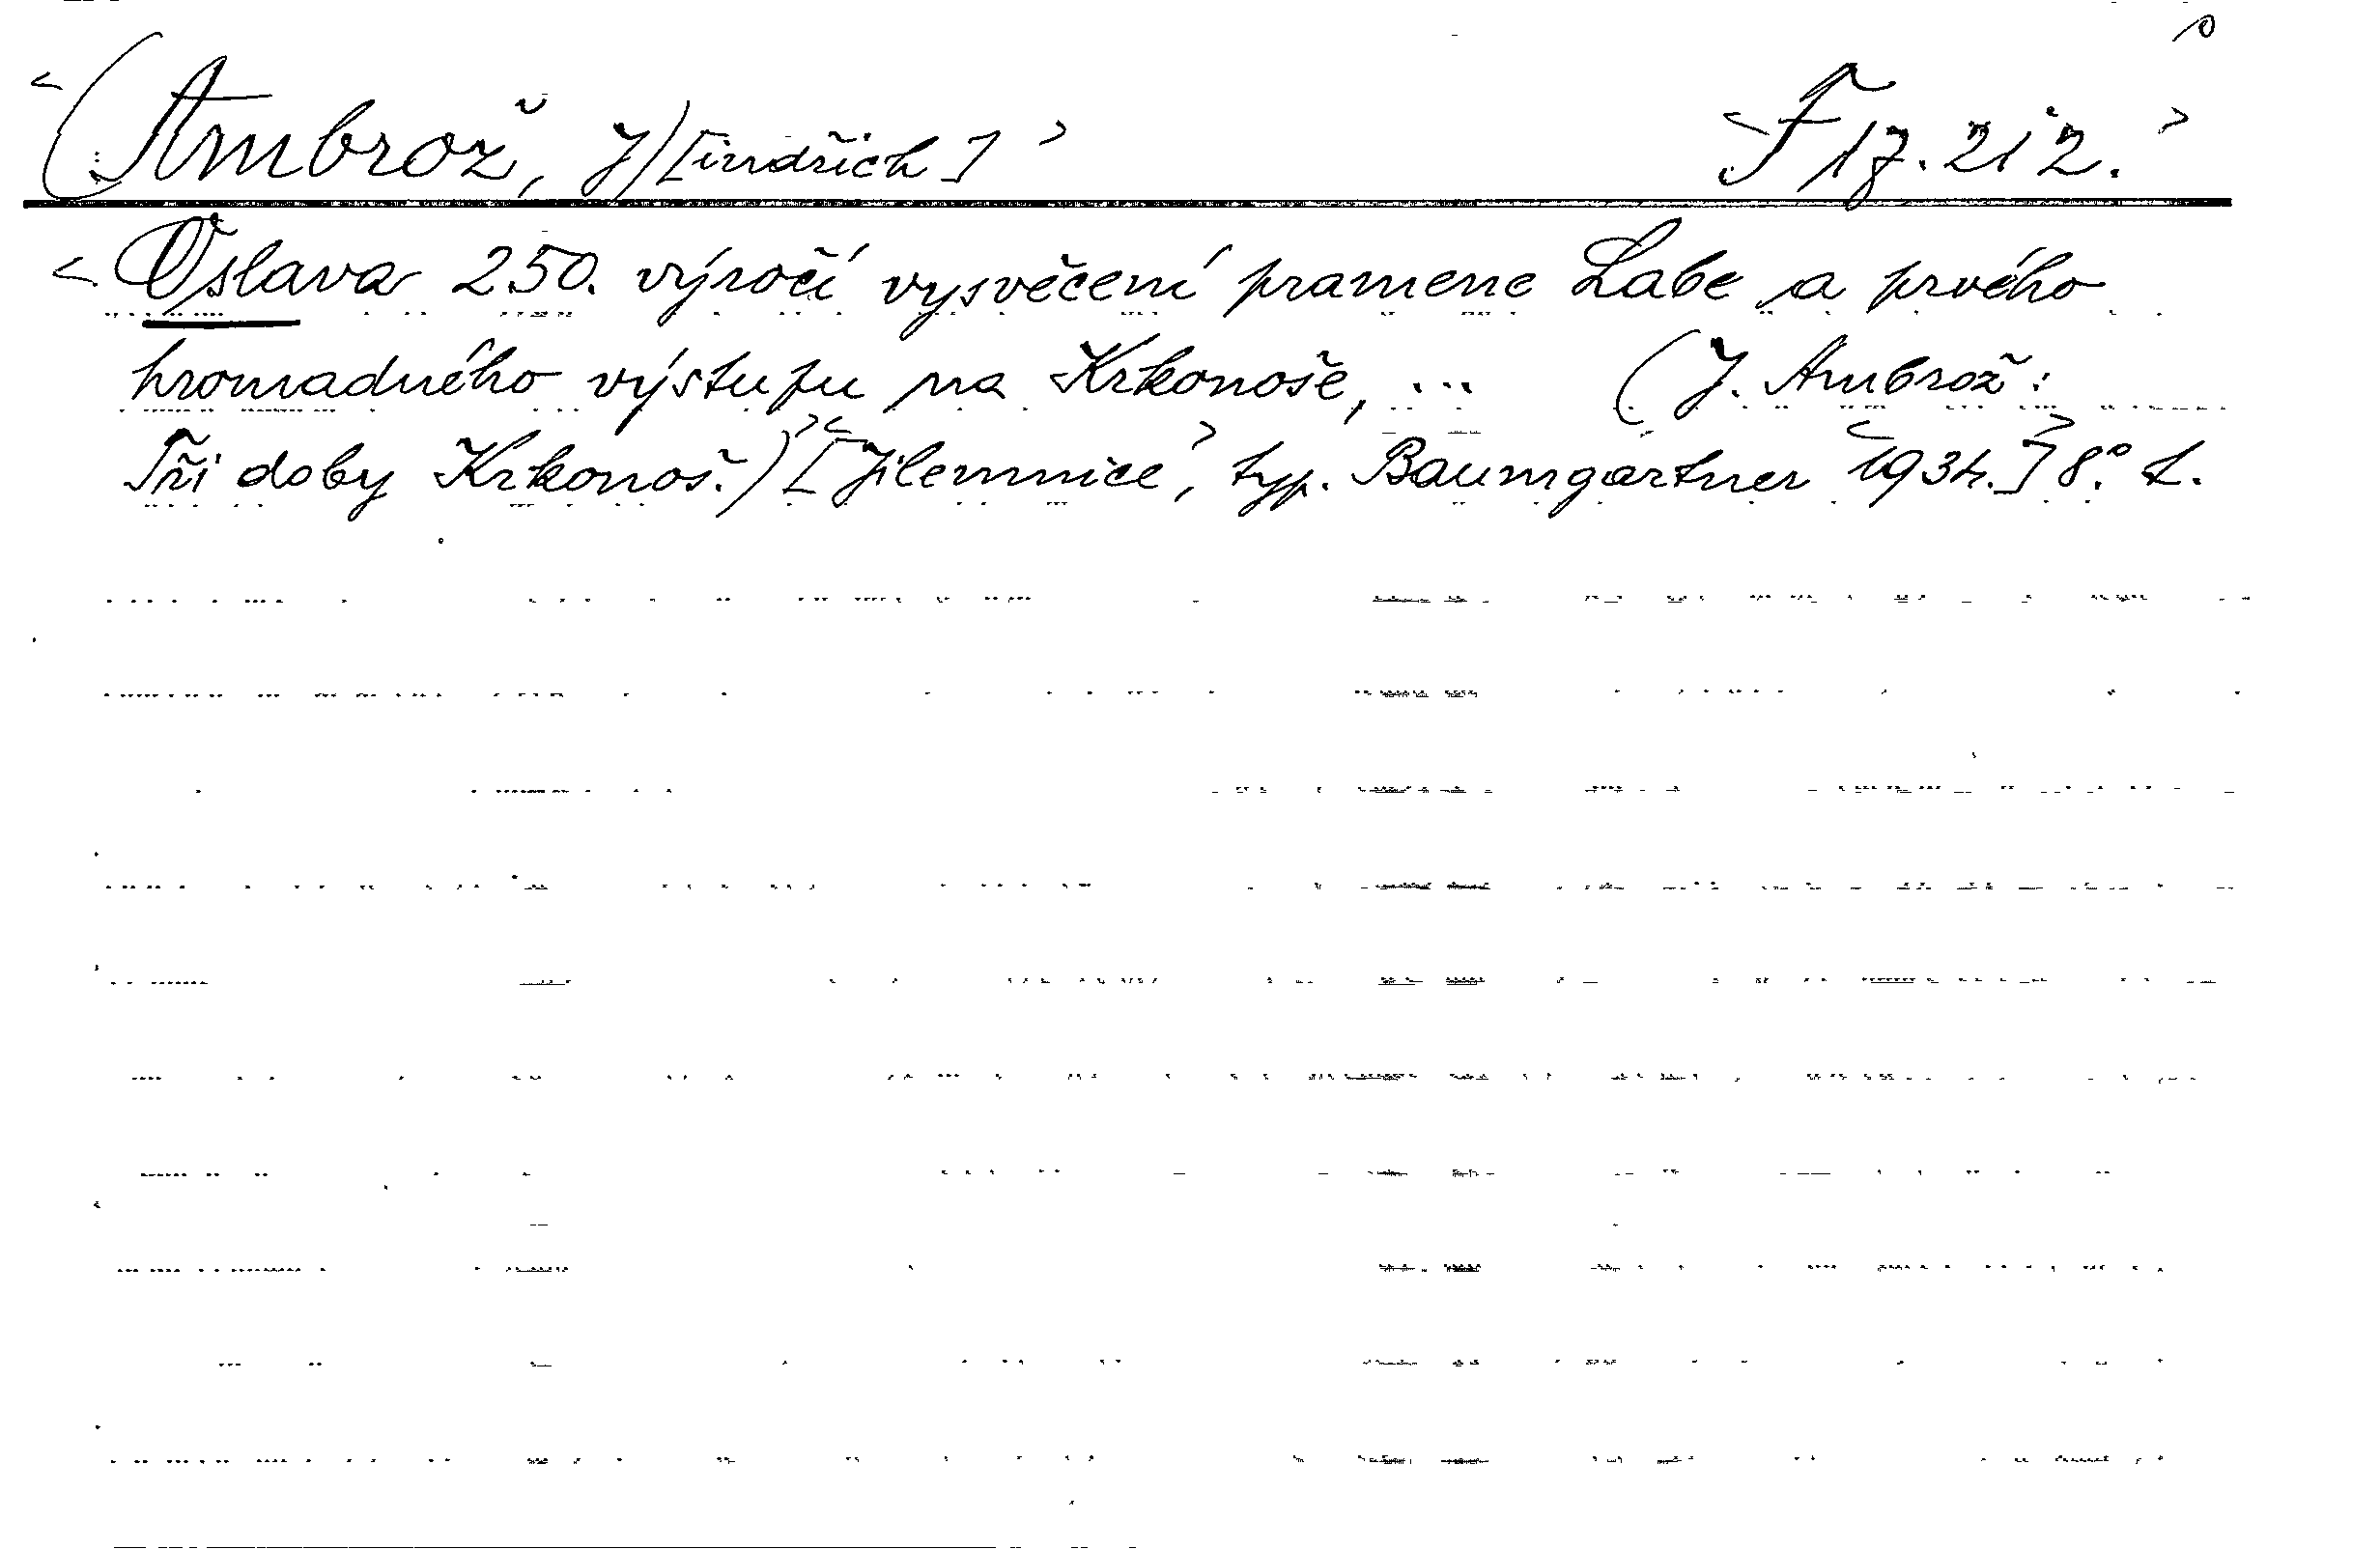 <(Ambrož, J)[indřich]> <F 17.212.>
<Oslava 250. výročí vysvěcení pramene Labe a prvého
hromadného výstupu na Krkonoše, ... (J. Ambrož:
Tři doby Krkonoš.)> <[Jilemnice>, typ. Baumgartner <1934.]> 8.° L.